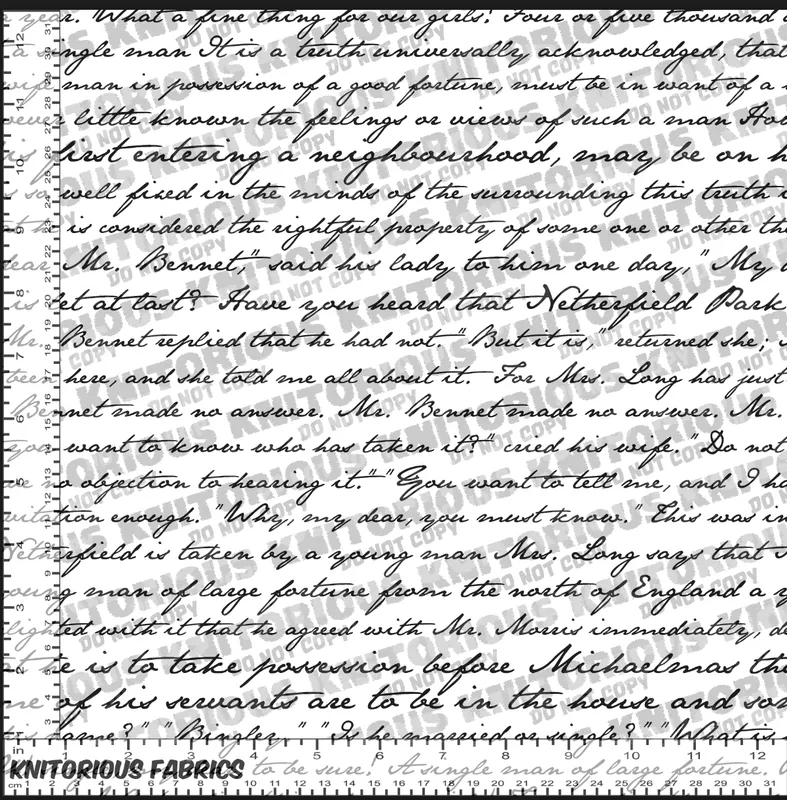 a year. What a fine thing for our girls! Four or five thousand a
a single man It is a truth universally acknowledged, that
wife man in possession of a good fortune, must be in want of a
little known the feelings or views of such a man How
is first entering a neighbourhood, may be on h
so well fixed in the minds of the surrounding this truth i
is considered the rightful property of some one or other th
dear Mr. Bennet," said his lady to him one day, "My d
is let at last? Have you heard that Netherfield Park
Mr. Bennet replied that he had not. "But it is," returned she;
been here, and she told me all about it. For Mrs. Long has just
Bennet made no answer. Mr. Bennet made no answer. Mr.
you want to know who has taken it?" cried his wife. "Do not
no objection to hearing it." "You want to tell me, and I ha
invitation enough. "Why, my dear, you must know." This was in
Netherfield is taken by a young man Mrs. Long says that
young man of large fortune from the north of England a y
lighted with it that he agreed with Mr. Morris immediately, de
he is to take possession before Michaelmas th
of his servants are to be in the house and so
name?" "Bingley." "Is he married or single?" "What is
KNITORIOUS FABRICS to be sure! A single man of large fortune.
KNITORIOUS
DO NOT COPY
in
1 2 3 4 5 6 7 8 9 10 11 12
cm 1 2 3 4 5 6 7 8 9 10 11 12 13 14 15 16 17 18 19 20 21 22 23 24 25 26 27 28 29 30 31